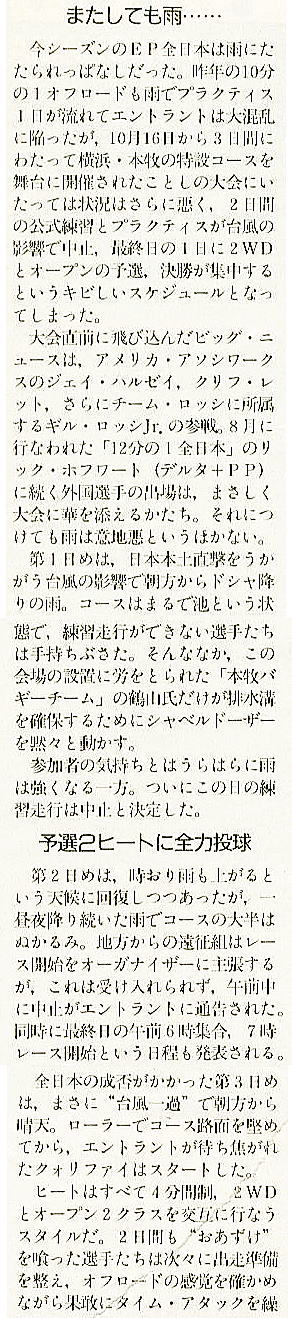 またしても雨……
今シーズンのＥＰ全日本は雨にた
たられっぱなしだった。昨年の10分
の１オフロードも雨でプラクティス
１日が流れてエントラントは大混乱
に陥ったが，10月16日から３日間に
わたって横浜・本牧の特設コースを
舞台に開催されたことしの大会にい
たっては状況はさらに悪く，２日間
の公式練習とプラクティスが台風の
影響で中止，最終日の１日に２WD
とオープンの予選，決勝が集中する
というキビしいスケジュールとなっ
てしまった。
大会直前に飛び込んだビッグ・ニ
ュースは，アメリカ・アソシワーク
スのジェイ・ハルゼイ，クリフ・レ
ット，さらにチーム・ロッシに所属
するギル・ロッシJr.の参戦。８月に
行なわれた「12分の１全日本」のリ
ック・ホフワート（デルタ＋ＰＰ）
に続く外国選手の出場は，まさしく
大会に華を添えるかたち。それにつ
けても雨は意地悪というほかない。
第１日めは，日本本土直撃をうか
がう台風の影響で朝方からドシャ降
りの雨。コースはまるで池という状
態で，練習走行ができない選手たち
は手持ちぶさた。そんななか，この
会場の設置に労をとられた「本牧バ
ギーチーム」の鶴山氏だけが排水溝
を確保するためにシャベルドーザー
を黙々と動かす。
参加者の気持ちとはうらはらに雨
は強くなる一方。ついにこの日の練
習走行は中止と決定した。
予選2ヒートに全力投球
第２日めは，時おり雨も上がると
いう天候に回復しつつあったが，一
昼夜降り続いた雨でコースの大半は
ぬかるみ。地方からの遠征組はレー
ス開始をオーガナイザーに主張する
が，これは受け入れられず，午前中
に中止がエントラントに通告された。
同時に最終日の午前６時集合，７時
レース開始という日程も発表される。
全日本の成否がかかった第３日め
は，まさに“台風一過”で朝方から
晴天。ローラーでコース路面を堅め
てから，エントラントが待ち焦がれ
たクォリファイはスタートした。
ヒートはすべて４分間制，２WD
とオープン２クラスを交互に行なう
スタイルだ。２日間も“おあずけ”
を喰った選手たちは次々に出走準備
を整え，オフロードの感覚を確かめ
ながら果敢にタイム・アタックを繰